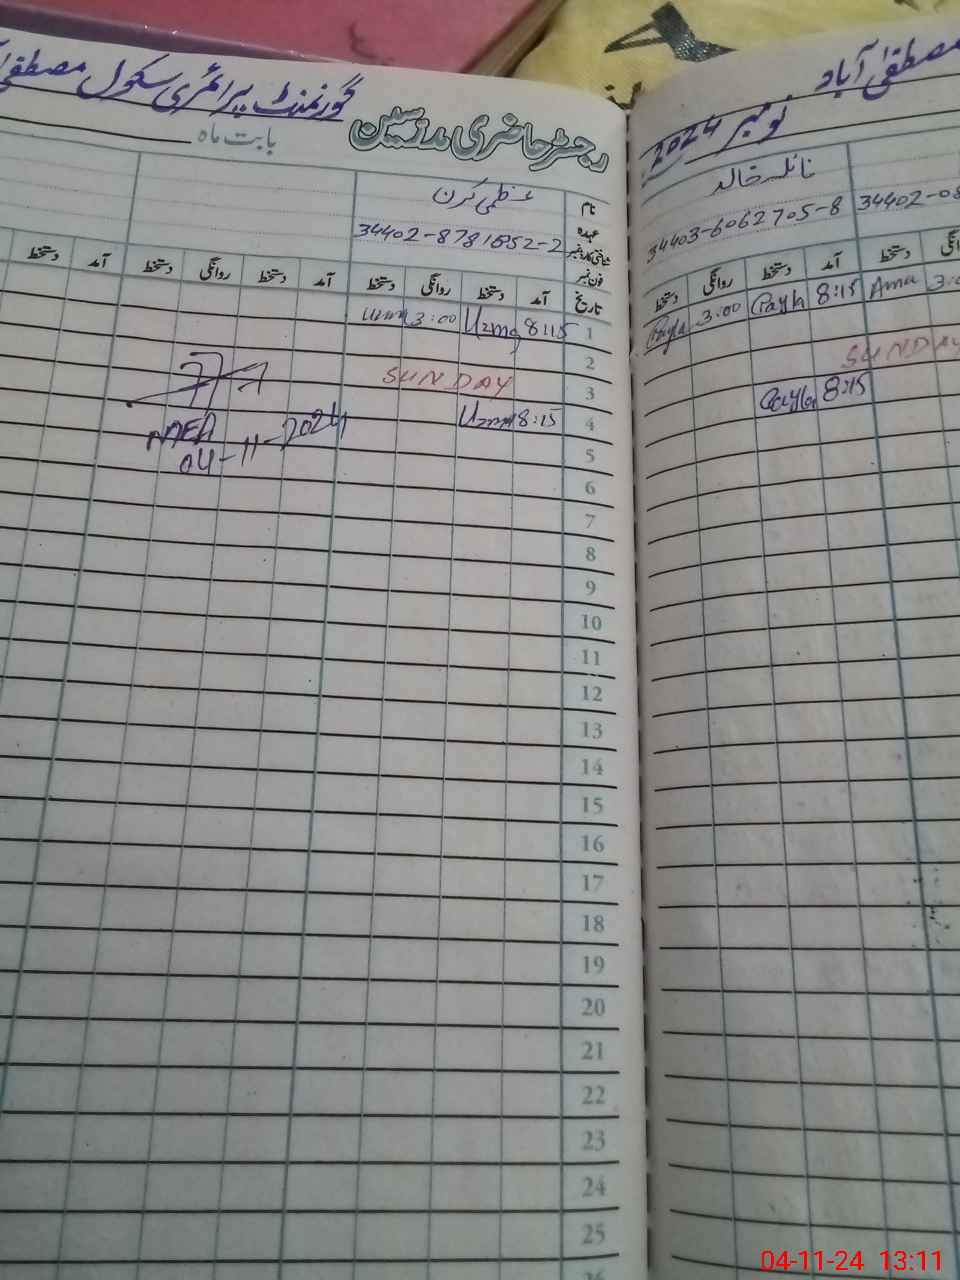 گورنمنٹ پرائمری سکول مصطفیٰ
رجسٹر حاضری مدرسین
بابت ماہ
نام
عظمیٰ کرن
عہدہ
شناختی کارڈ نمبر
34402-8781652-2
فون نمبر
تاریخ آمد دستخط روانگی دستخط آمد دستخط روانگی دستخط آمد دستخط
1 8:15 Uzma 3:00
2
3 SUNDAY
4 8:15 Uzma
MEA
04-11-2024
5
6
7
8
9
10
11
12
13
14
15
16
17
18
19
20
21
22
23
24
25
26
مصطفیٰ آباد
نومبر 2024
نائلہ خالد
34402-08
34403-6062705-8
آمد دستخط روانگی دستخط
Ama 8:15 3:00
SUNDAY
8:15
04-11-24 13:11